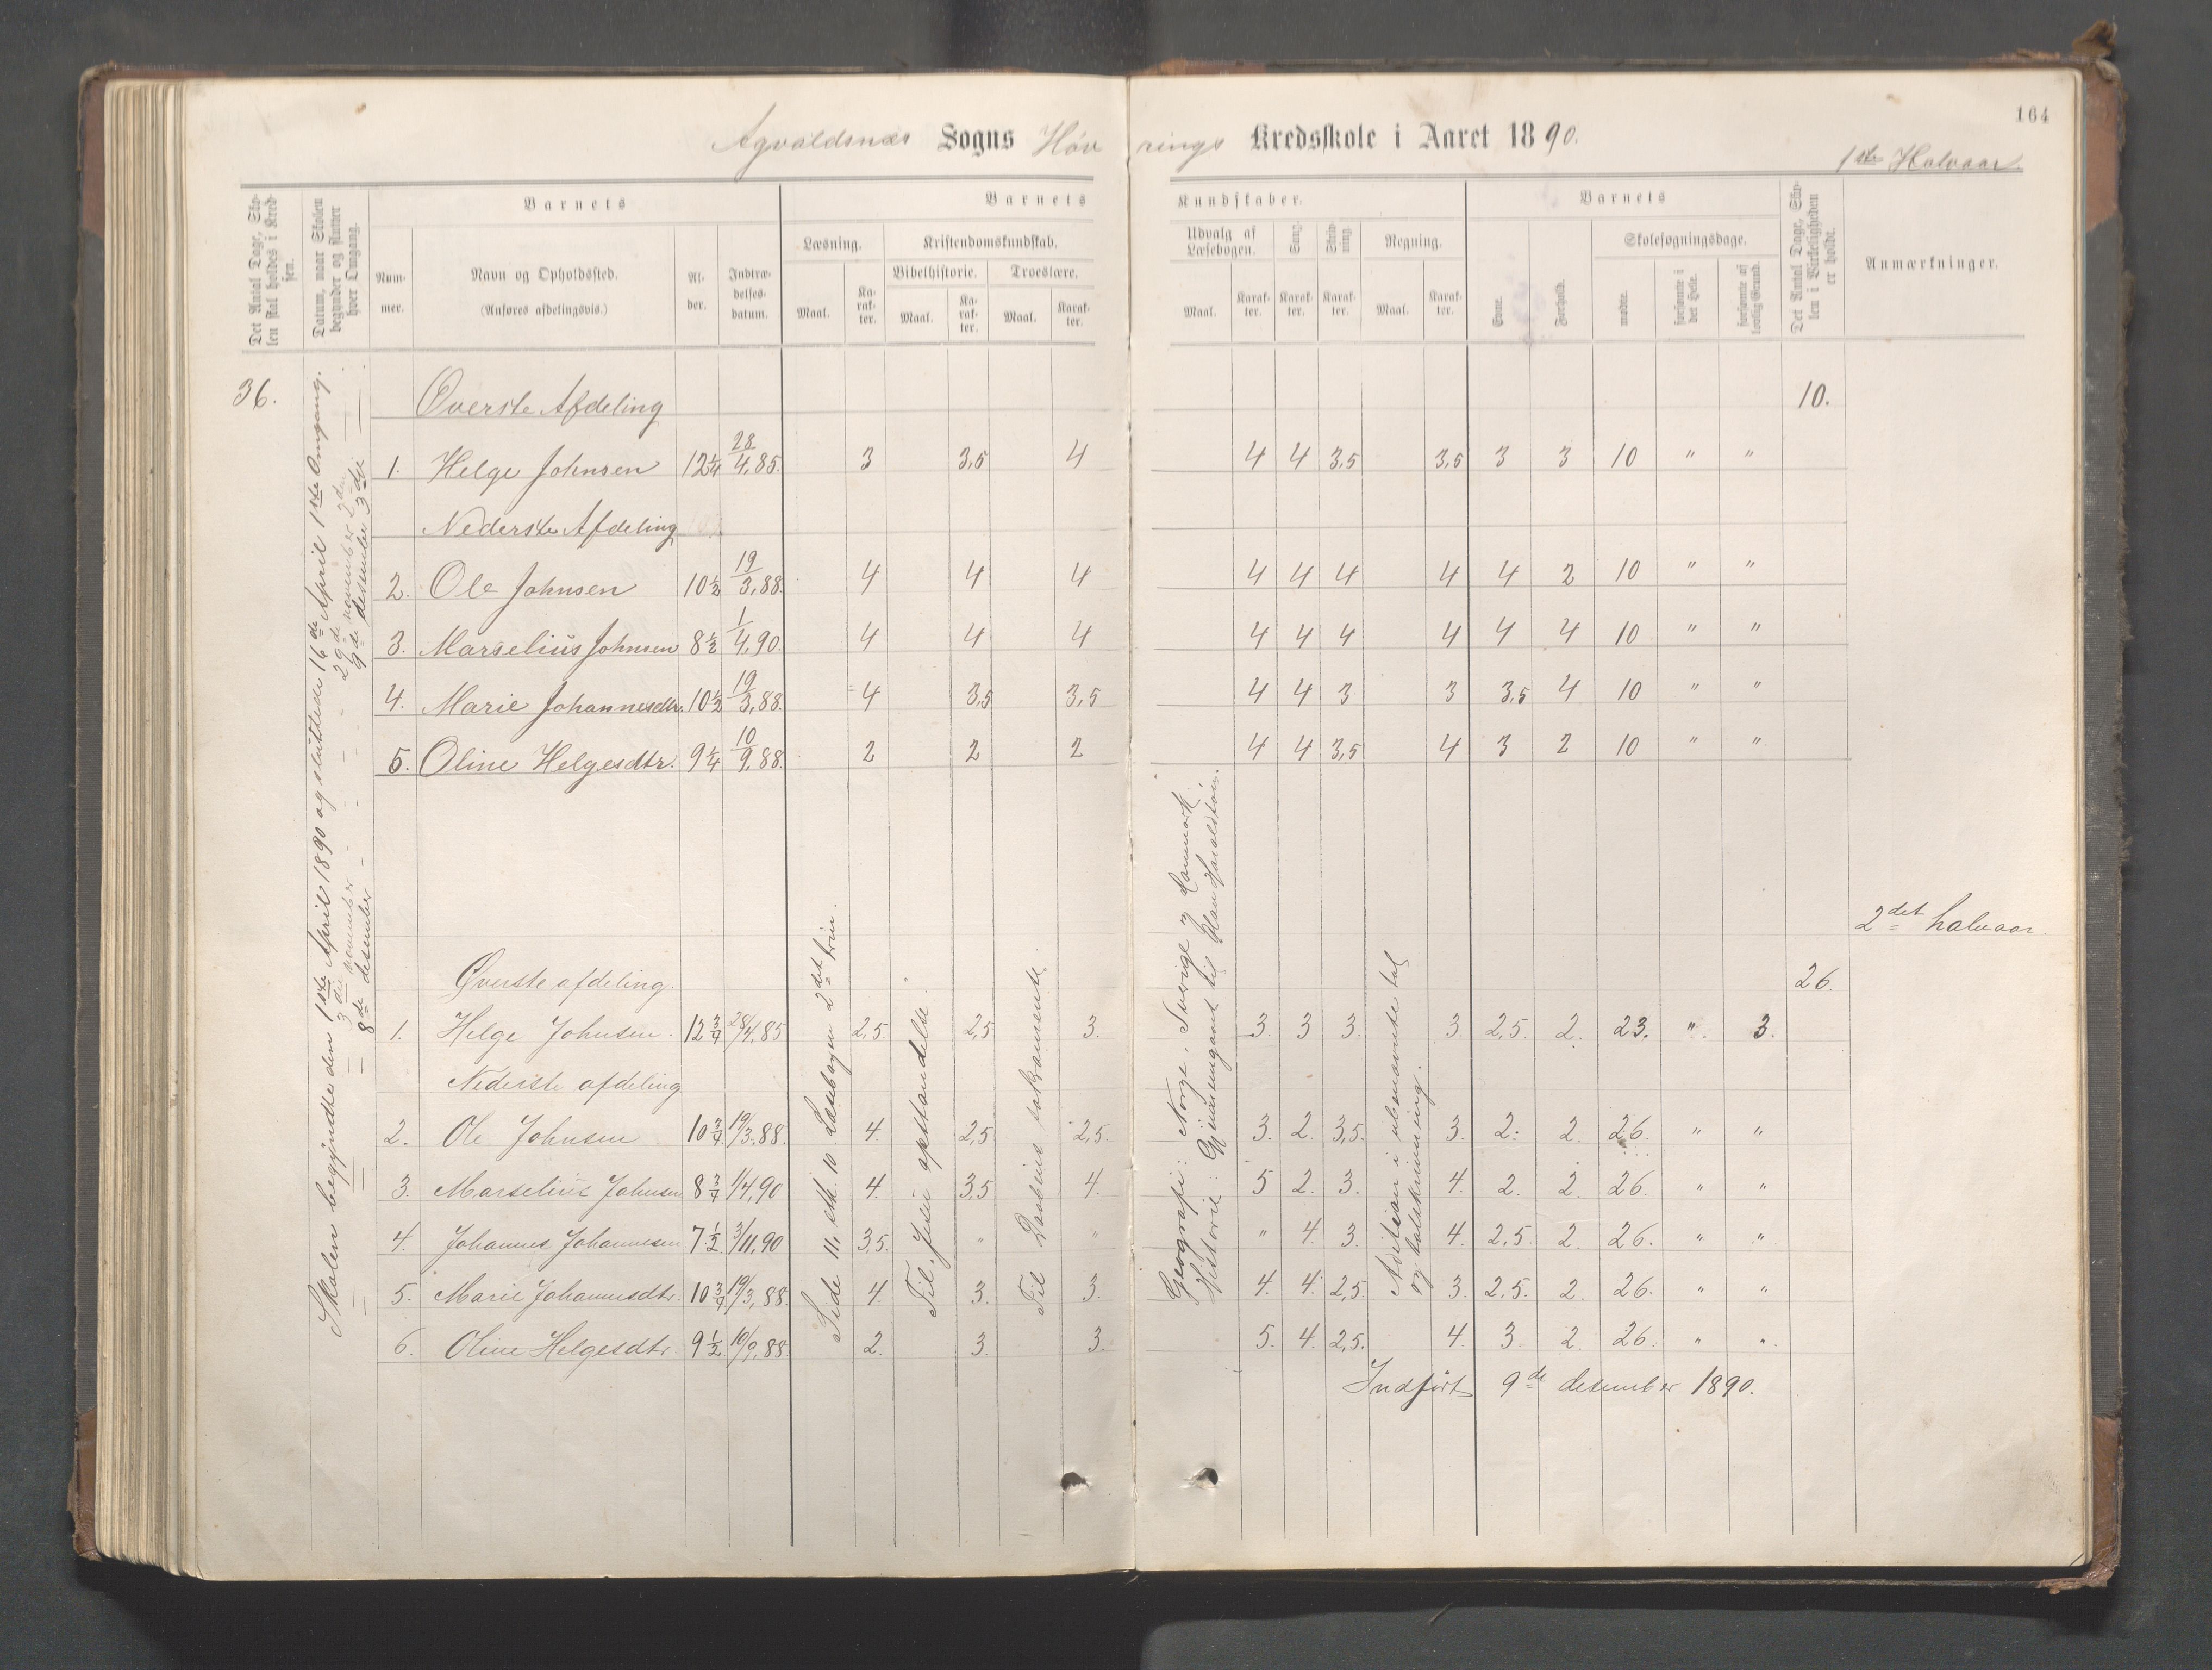 164
Agvaldsnæs Sogns Høvrings Kredsskole i Aaret 1890.
1ste Halvaar.
Det Antal Dage, Skolen skal holdes i Kredsen.
Datum, naar Skolen begynder og slutter hver Omgang.
Barnets
Nummer.
Navn og Opholdssted.
(Anføres afdelingsvis.)
Alder.
Indtrædelsesdatum.
Barnets Kundskaber.
Læsning.
Maal.
Karakter.
Kristendomskundskab.
Bibelhistorie.
Maal.
Karakter.
Troeslære.
Maal.
Karakter.
Udvalg af Læsebogen.
Maal.
Karakter.
Sang.
Karakter.
Skrivning.
Karakter.
Regning.
Maal.
Karakter.
Barnets
Evne.
Forhold.
Skolesøgningsdage.
mødte.
forsømte i det Hele.
forsømte af lovlig Grund.
Det Antal Dage, Skolen i Virkeligheden er holdt.
Anmærkninger.
36. Øverste Afdeling 10.
1. Helge Johnsen 12 1/4 28/4,85. 3 3,5 4 4 4 3,5 3,5 3 3 10 " "
Nederste Afdeling
2. Ole Johnsen 10 1/2 19/3,88. 4 4 4 4 4 4 4 4 2 10 " "
3. Marselius Johnsen 8 1/2 1/4,90. 4 4 4 4 4 4 4 4 4 10 " "
4. Marie Johannesdtr. 10 1/2 19/3,88. 4 3,5 3,5 4 4 3 3 3,5 4 10 " "
5. Oline Helgesdtr. 9 1/4 10/9,88. 2 2 2 4 4 3,5 4 3 2 10 " "
2det halvaar.
Øverste afdeling. 26.
1. Helge Johnsen. 12 3/4 28/4,85 2,5. 2,5 3. 3. 3 3. 3. 2,5. 2. 23. ". 3.
Nederste afdeling
2. Ole Johnsen 10 3/4 19/3,88. 4. 2,5 2,5. 3. 2. 3,5. 3. 2. 2. 26. " "
3. Marselius Johnsen 8 3/4 1/4,90 4. 3,5 4. 5 2. 3. 4. 2. 2. 26. " "
4. Johannes Johannesen 7 1/2 3/11,90 3,5. " " " 4. 3. 4. 2,5. 2. 26. " "
5. Marie Johannesdtr. 10 3/4 19/3,88. 4. 3. 3. 4. 4. 2,5. 3. 2,5. 2. 26. " "
6. Oline Helgesdtr. 9 1/2 10/9,88. 2. 3. 3. 5. 4. 2,5. 4. 3. 2. 26. " "
Indført 9de desember 1890.
Skolen begyndte den 1ste April 1890 og sluttede 16de April 1ste Omgang.
3die november 29de november 2den
8de desember 9de desember 3die
Side 11, stk. 10 Læsebogen 2det trin.
Til Jesu opstandelse.
Til Daabens sakramente
Geografi: Norge, Sverige og Danmark.
Historie: Gjennemgaaet til Olav Haraldsøn.
Adition i ubenævnte tal
og talskrivning.